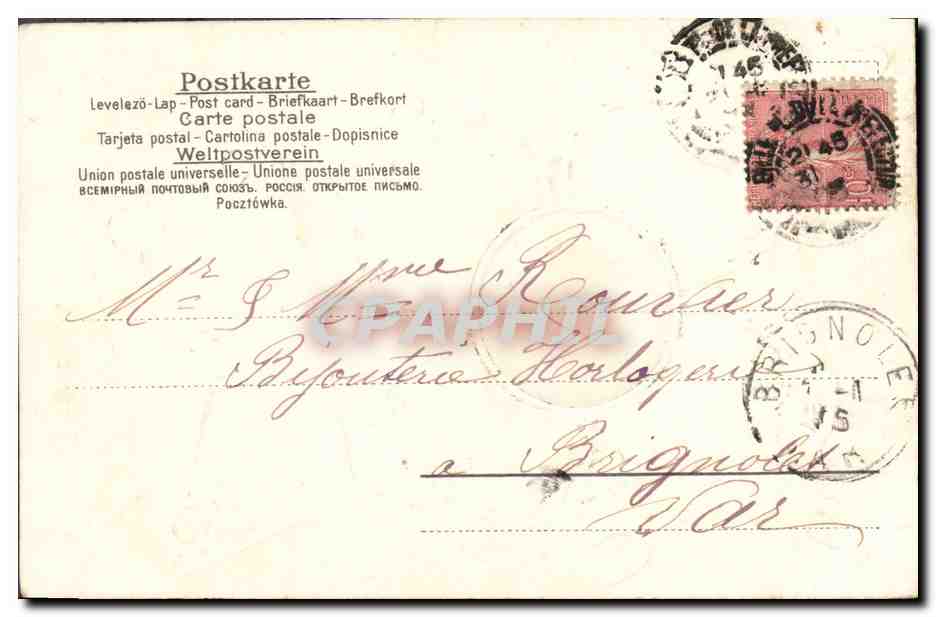 Postkarte
Levelező-Lap - Post card - Briefkaart - Brefkort
Carte postale
Tarjeta postal - Cartolina postale - Dopisnice
Weltpostverein
Union postale universelle - Unione postale universale
ВСЕМІРНЫЙ ПОЧТОВЫЙ СОЮЗЪ. РОССІЯ. ОТКРЫТОЕ ПИСЬМО.
Pocztówka.
Mr & Mme
CPAPHIL
Bijouterie Horlogerie
à Brignoles
Var
BRIGNOLES